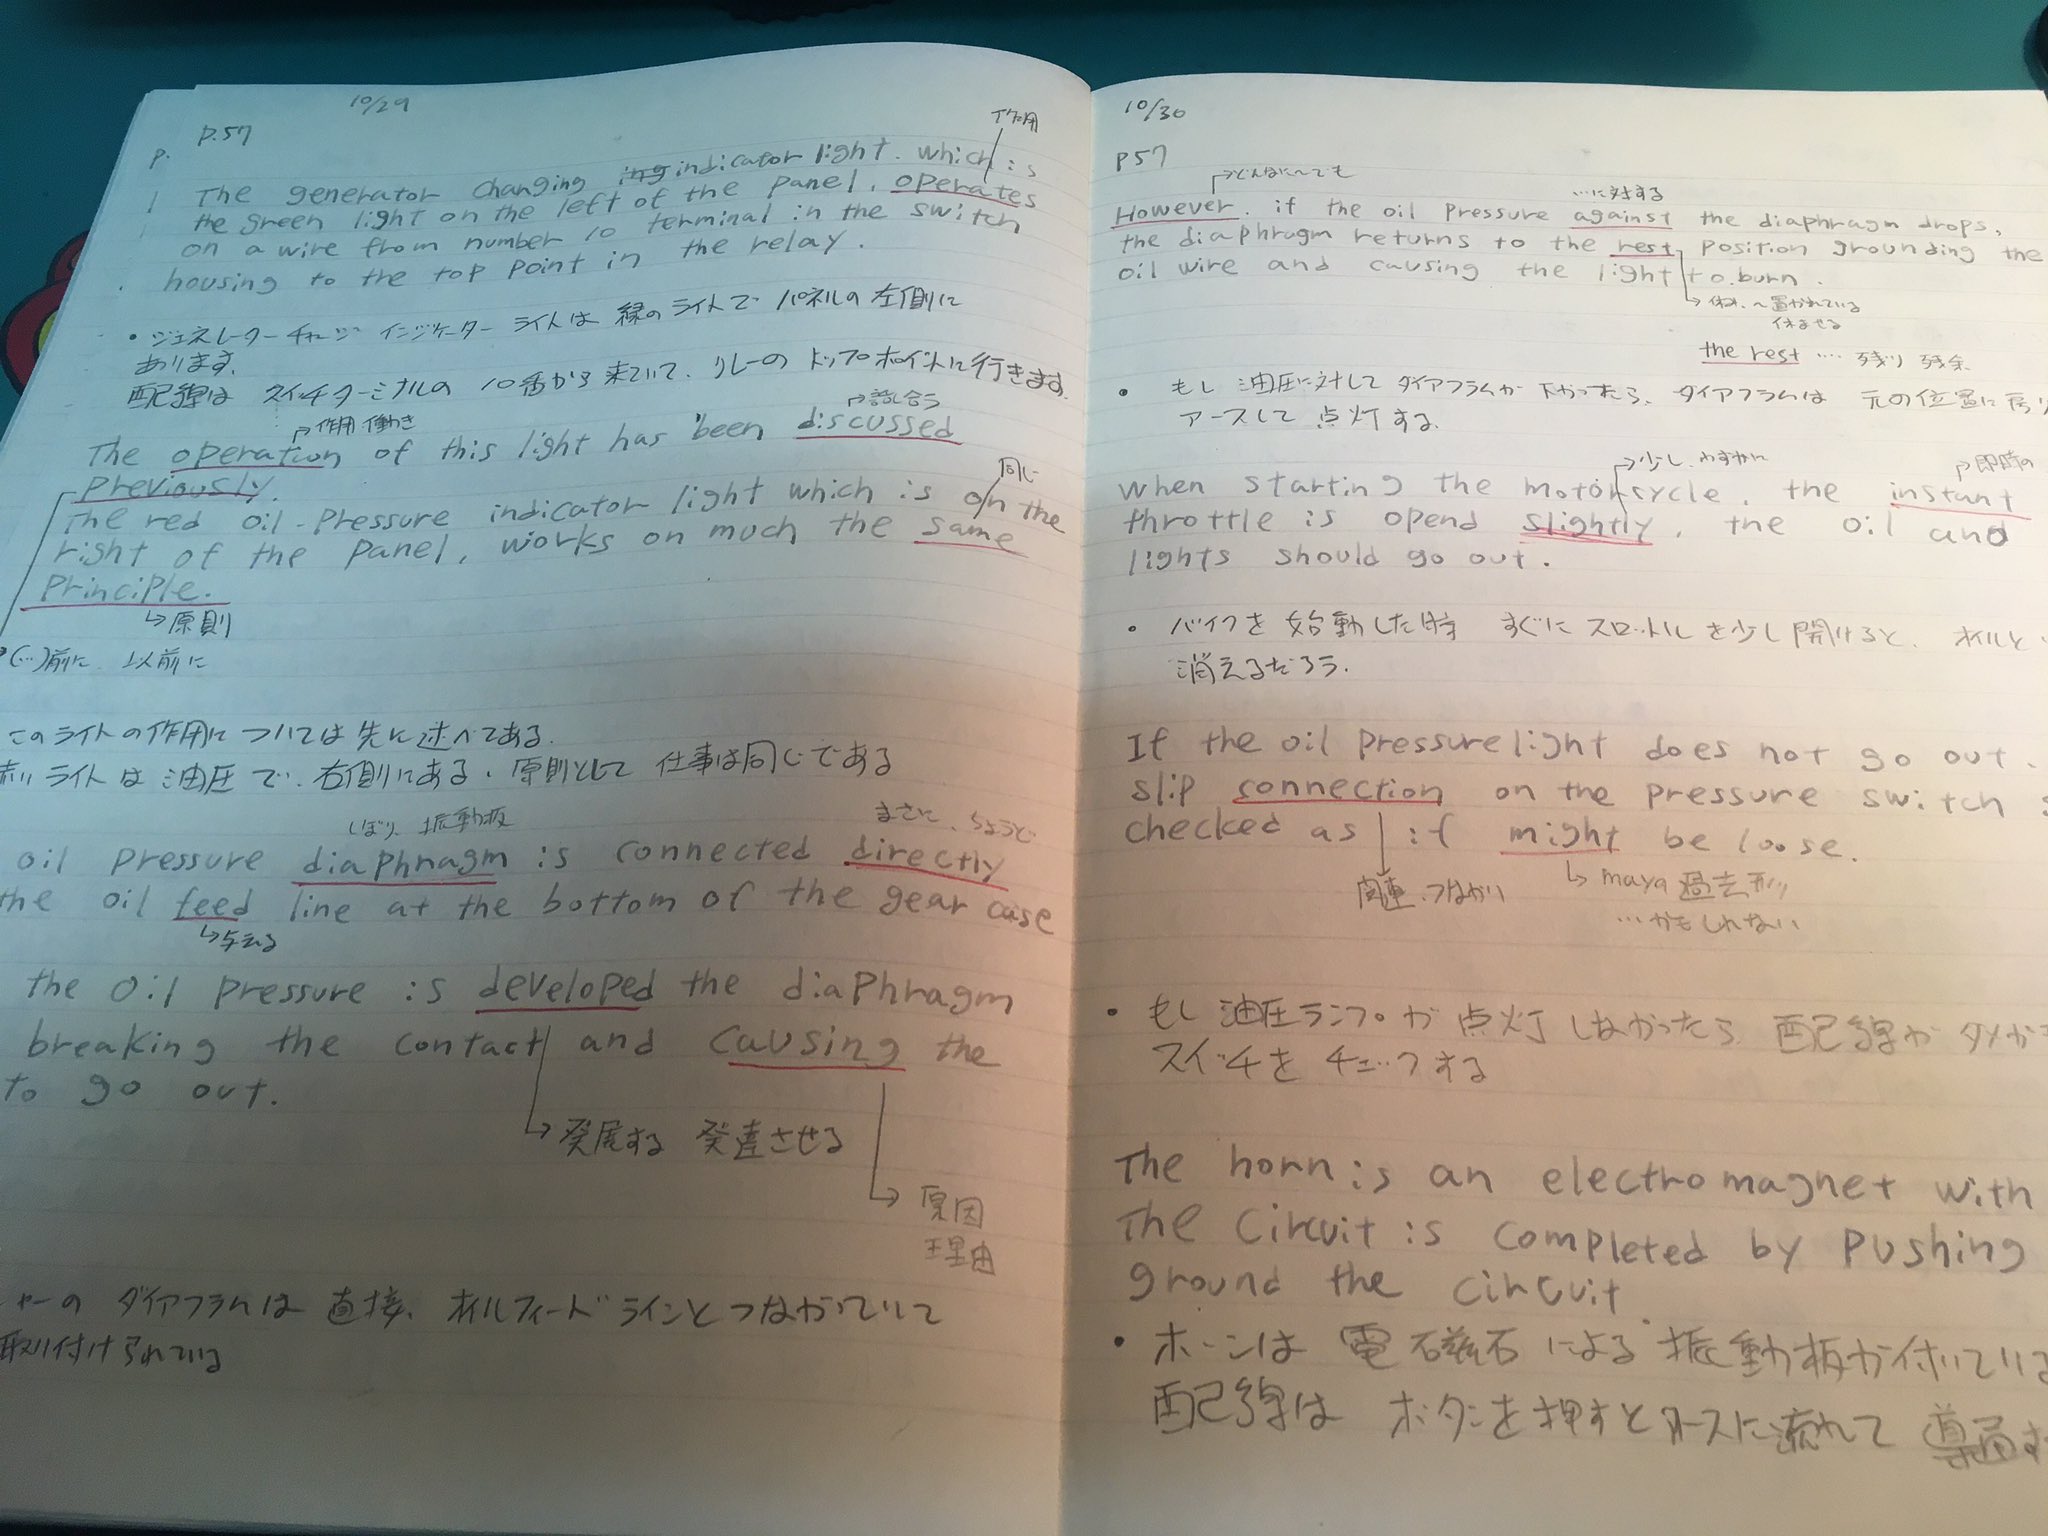 10/29
P.57
作用
The generator changing indicator light. which is
the green light on the left of the panel, operates
on a wire from number 10 terminal in the switch
housing to the top point in the relay.
・ジェネレーターチャージ インジケーター ライトは 緑のライトで パネルの左側に
あります.
配線は スイッチターミナルの 10番から来ていて、リレーの トップポイントに行きます.
作用 働き
話し合う
The operation of this light has been discussed
previously.
同じ
The red oil-pressure indicator light which is on the
right of the panel, works on much the same
principle.
原則
(…)前に 以前に
このライトの作用については先に述べてある.
赤いライトは油圧で、右側にある、原則として 仕事は同じである
しぼり、振動板
まさに、ちょうど
oil pressure diaphragm is connected directly
the oil feed line at the bottom of the gear case
与える
the oil pressure is developed the diaphragm
breaking the contact and causing the
to go out.
発展する 発達させる
原因
理由
ダイアフラムは 直接、オイルフィードラインとつながっていて
取り付けられている
10/30
P57
どんなに〜ても
…に対する
However, if the oil pressure against the diaphragm drops,
the diaphragm returns to the rest position grounding the
oil wire and causing the light to burn.
休み、〜置かれている
休ませる
the rest …. 残り 残余
・もし 油圧に対して ダイアフラムが 下がったら、ダイアフラムは 元の位置に戻り
アースして 点灯する.
少し、わずかに
即時の
when starting the motorcycle, the instant
throttle is opend slightly, the oil and
lights should go out.
・バイクを 始動した時 すぐに スロットルを少し開けると、オイルと
消えるだろう.
If the oil pressure light does not go out.
slip connection on the pressure switch
checked as it might be loose.
関連、つながり
maya 過去形
…かもしれない
・もし 油圧ランプが 点灯 しなかったら 配線が ダメか
スイッチを チェックする
The horn is an electromagnet with
The circuit is completed by pushing
ground the circuit.
・ホーンは 電磁石による 振動板が付いている
配線は ボタンを押すとアースに流れて 導通す